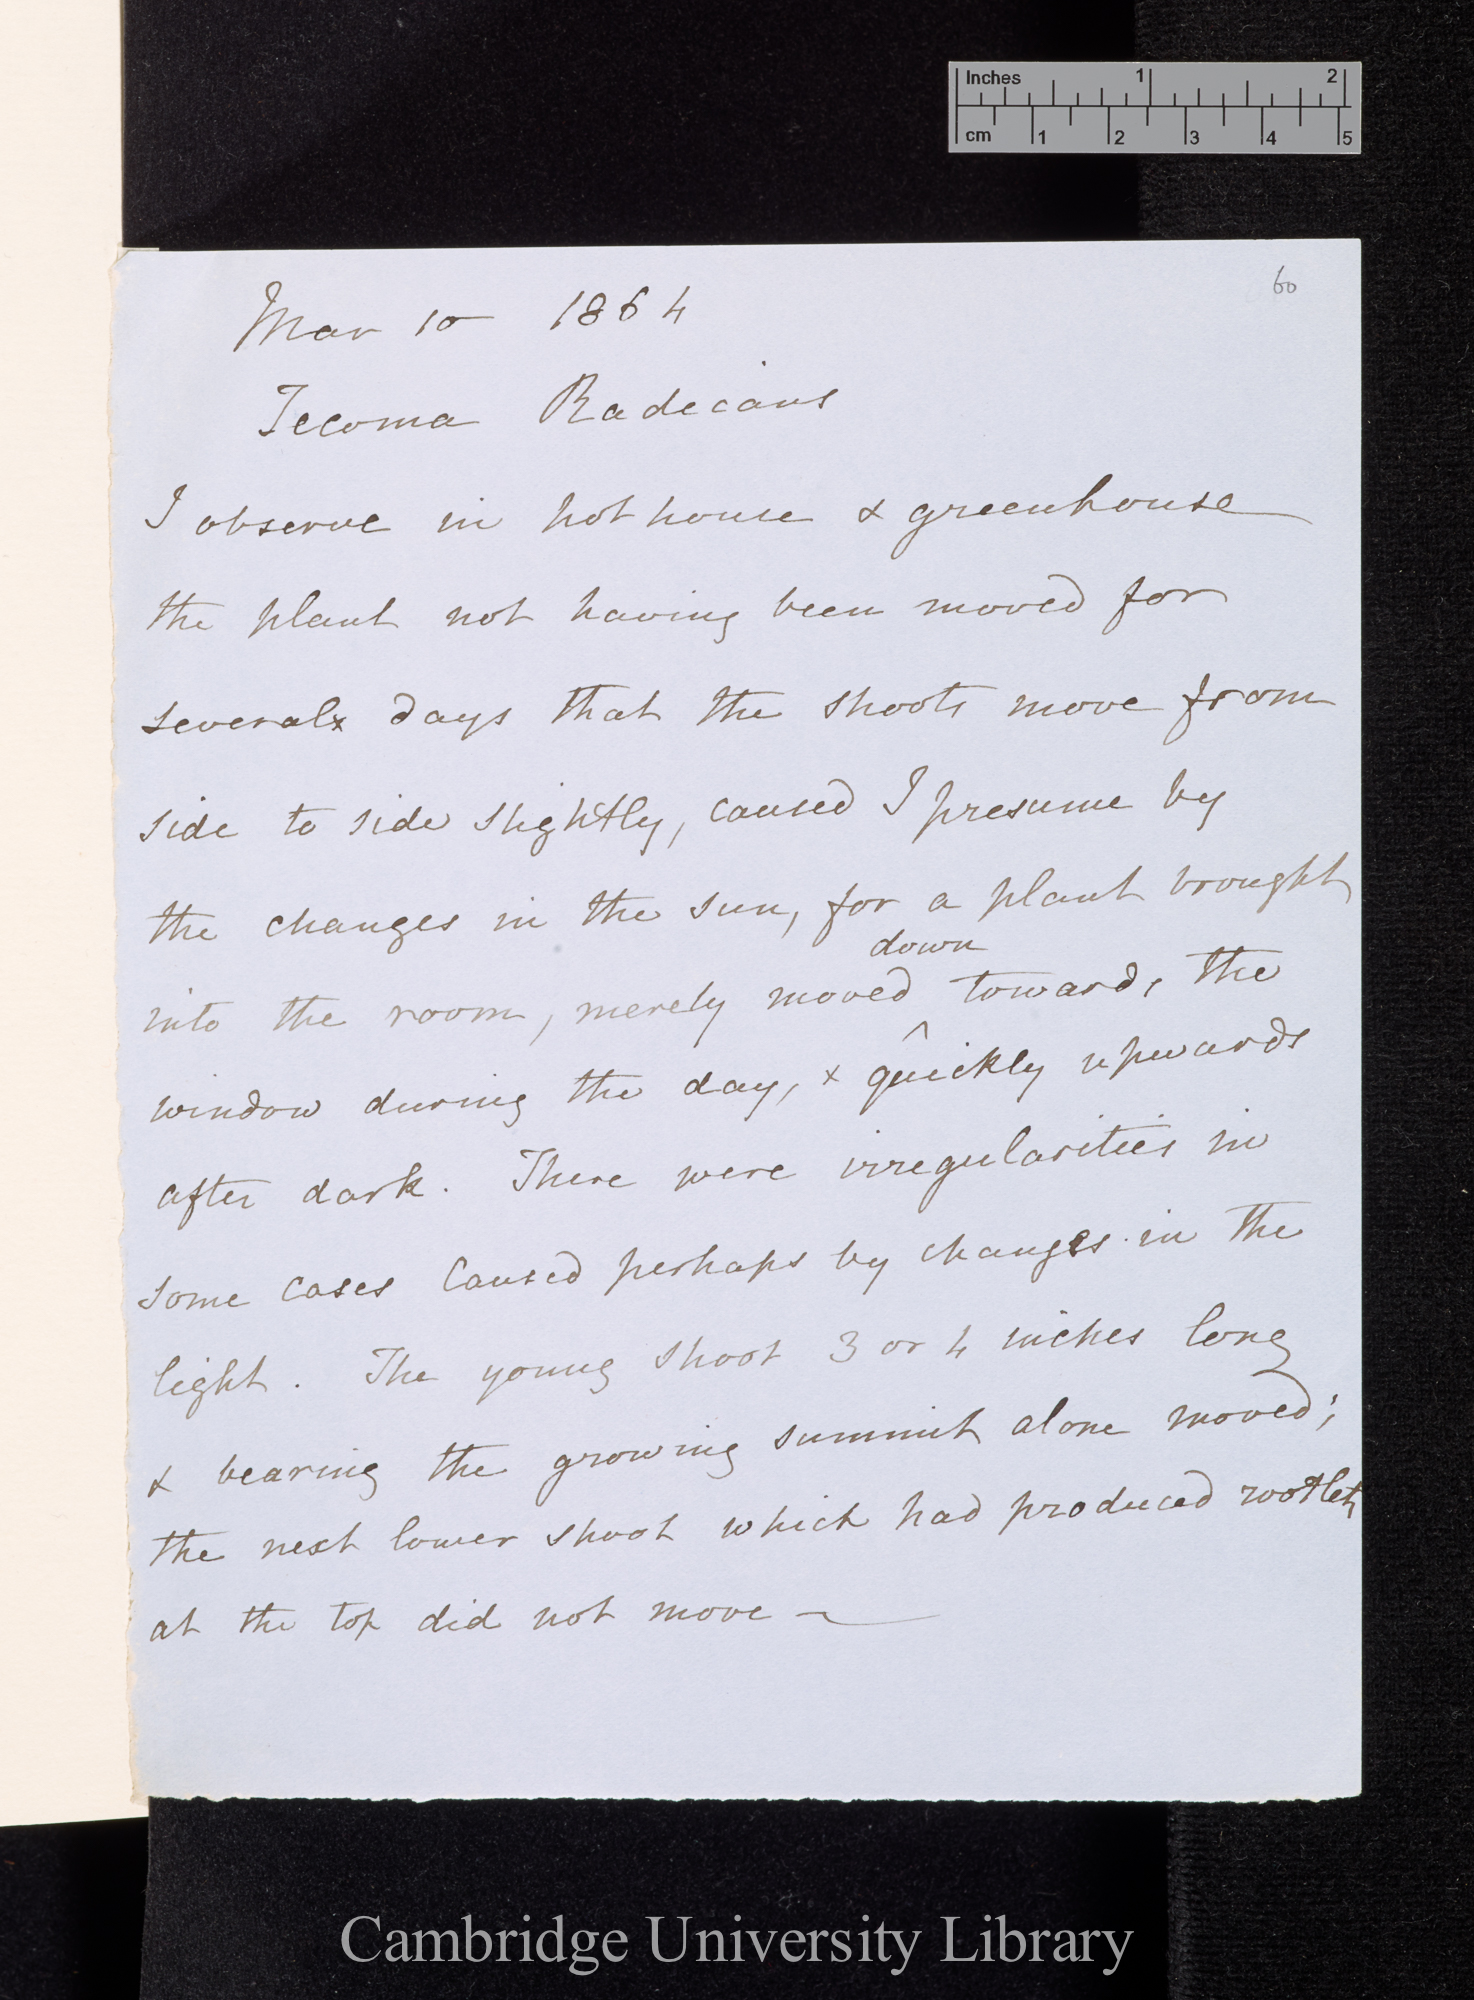 Inches 1 2
cm 1 2 3 4 5
60
Mar 10 1864
Tecoma Radicans
I observe in hot house & greenhouse
the plant not having been moved for
several days that the shoots move from
side to side slightly, caused I presume by
the changes in the sun, for a plant brought
down
into the room, merely moved towards the
window during the day, & ^ quickly upwards
after dark. There were irregularities in
some cases caused perhaps by changes in the
light. The young shoot 3 or 4 inches long
& bearing the growing summit alone moved;
the next lower shoot which had produced rootlets
at the top did not move —
Cambridge University Library